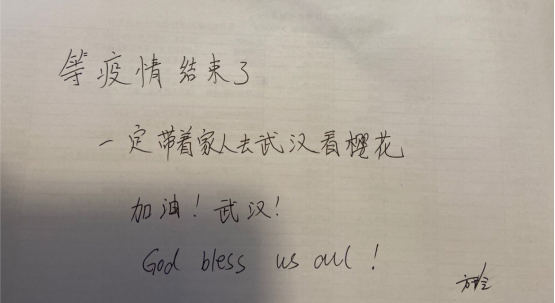 等疫情结束了
一定带着家人去武汉看樱花
加油！武汉！
God bless us all！